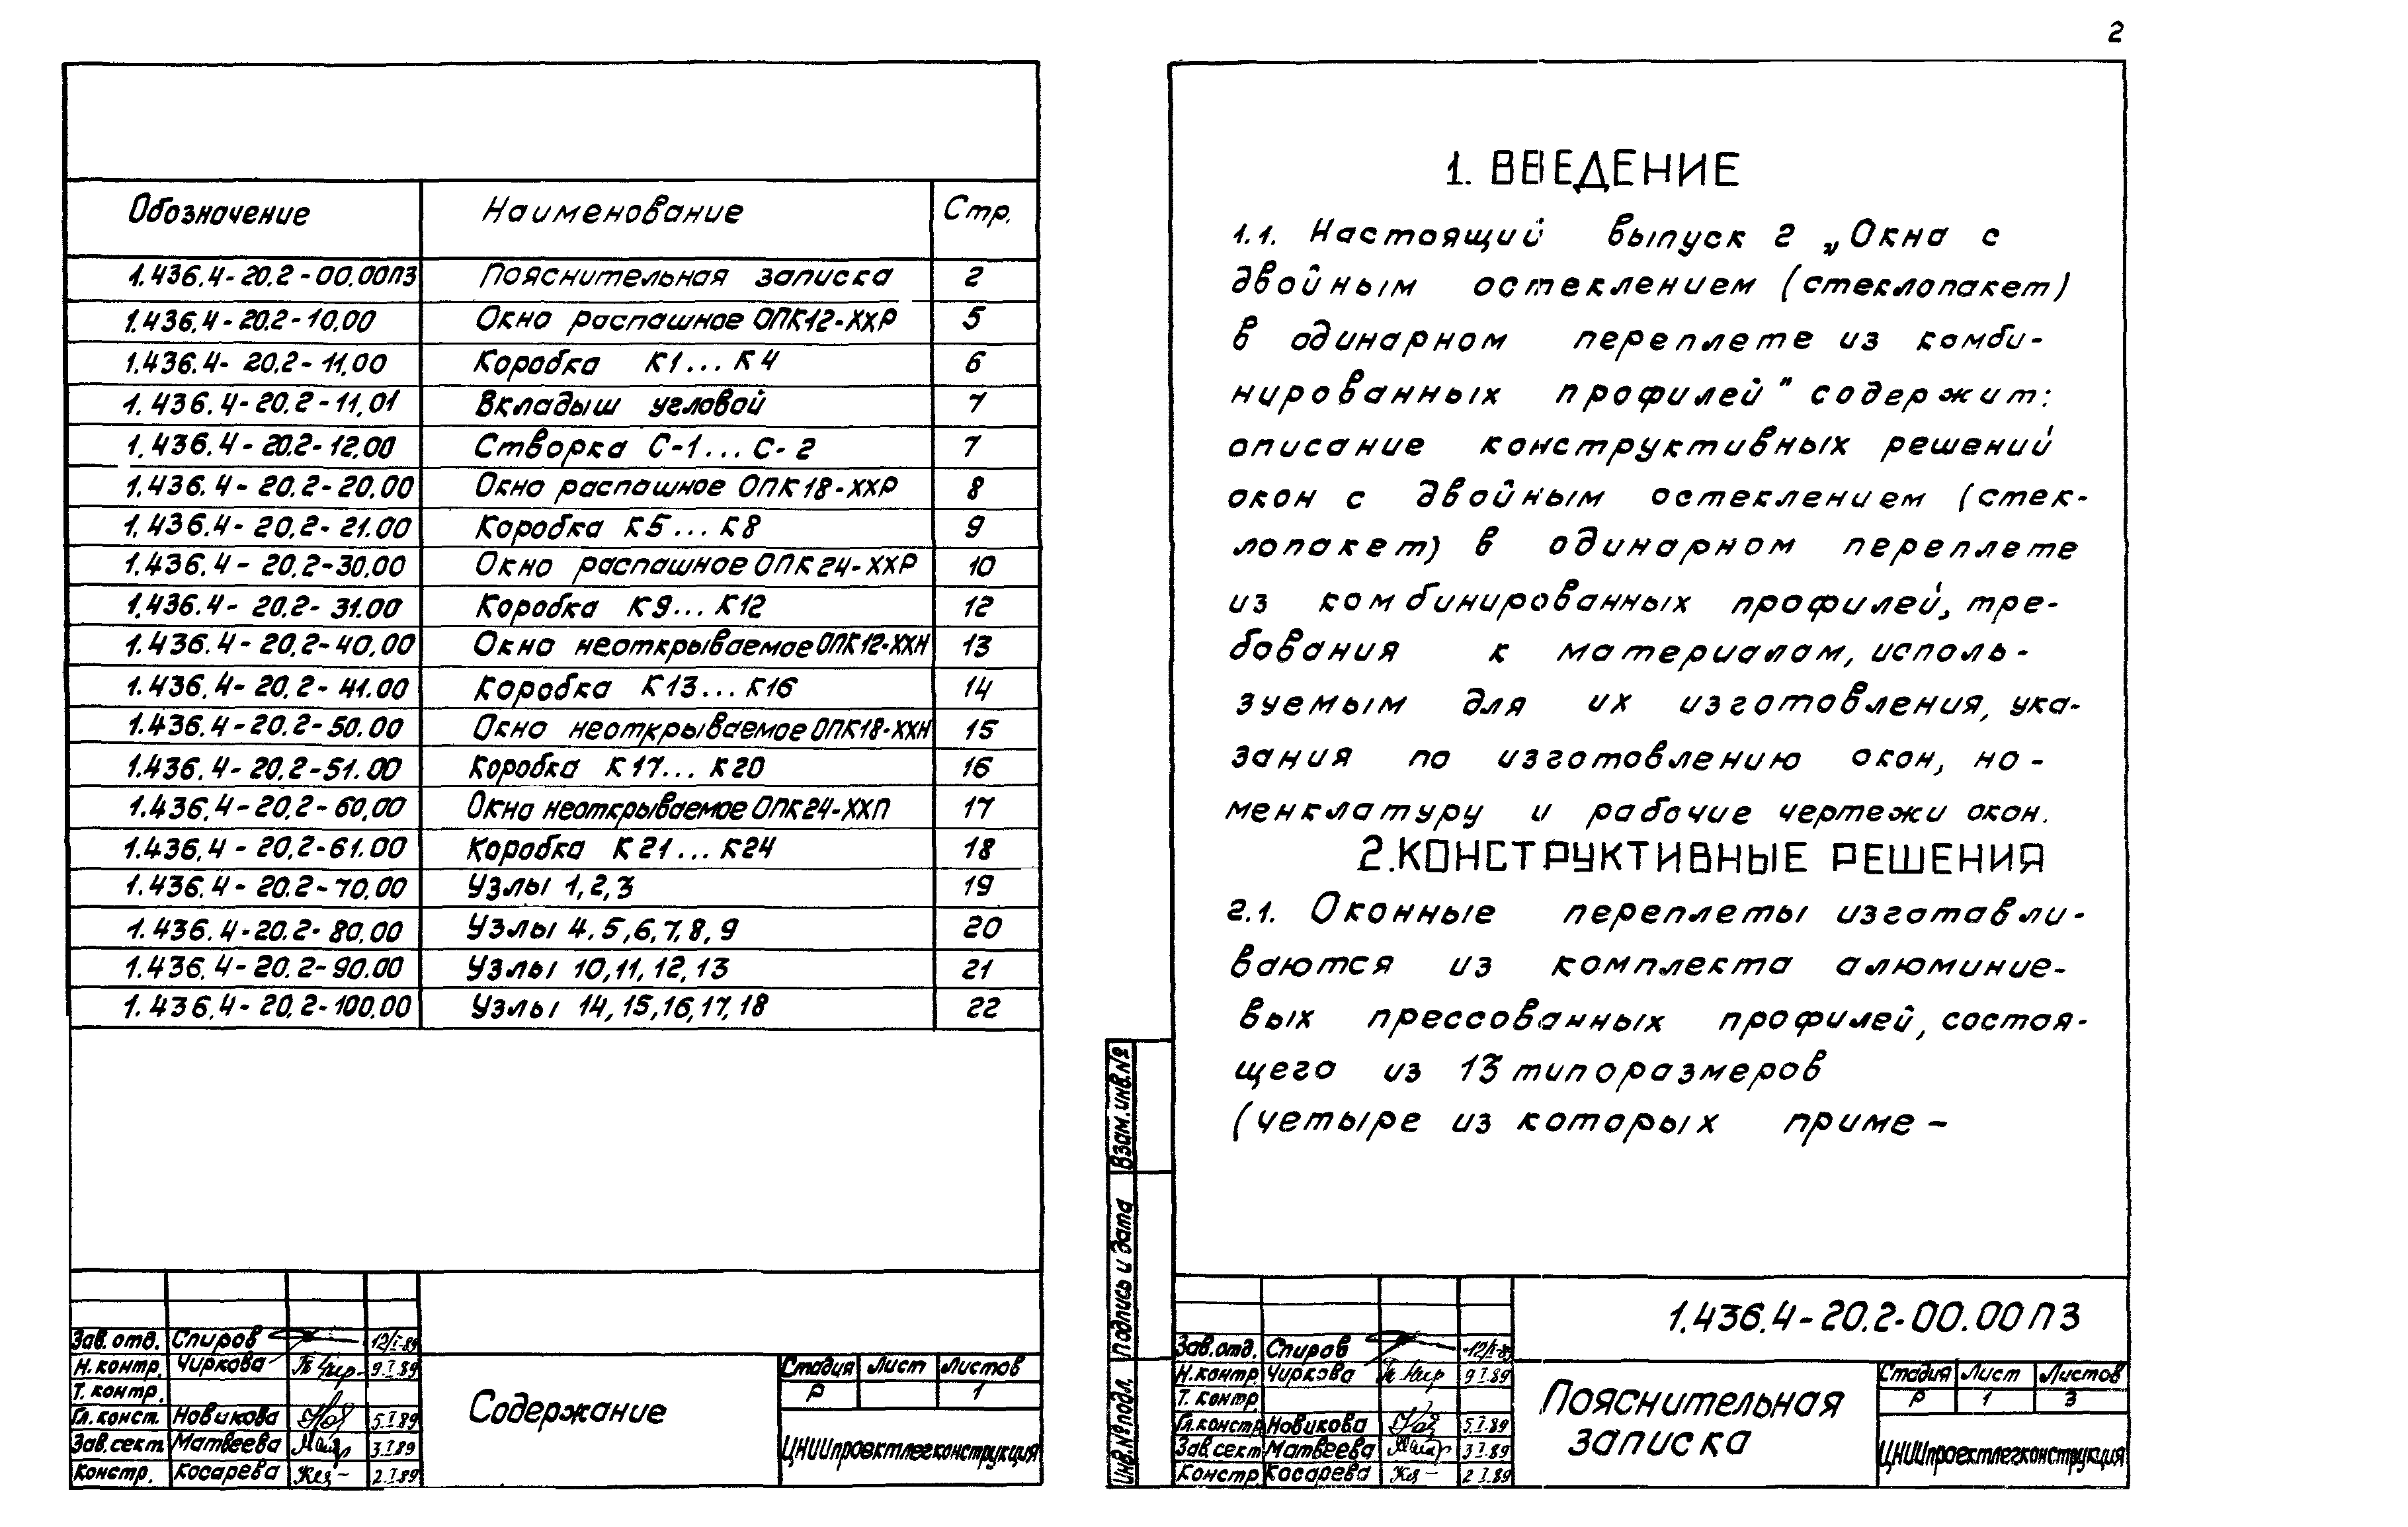 2
Обозначение Наименование Стр.
1.436.4-20.2-00.00ПЗ Пояснительная записка 2
1.436.4-20.2-10.00 Окно распашное ОПК12-ХХР 5
1.436.4-20.2-11.00 Коробка К1...К4 6
1.436.4-20.2-11.01 Вкладыш угловой 7
1.436.4-20.2-12.00 Створка С-1...С-2 7
1.436.4-20.2-20.00 Окно распашное ОПК18-ХХР 8
1.436.4-20.2-21.00 Коробка К5...К8 9
1.436.4-20.2-30.00 Окно распашное ОПК24-ХХР 10
1.436.4-20.2-31.00 Коробка К9...К12 12
1.436.4-20.2-40.00 Окно неоткрываемое ОПК12-ХХН 13
1.436.4-20.2-41.00 Коробка К13...К16 14
1.436.4-20.2-50.00 Окно неоткрываемое ОПК18-ХХН 15
1.436.4-20.2-51.00 Коробка К17...К20 16
1.436.4-20.2-60.00 Окно неоткрываемое ОПК24-ХХП 17
1.436.4-20.2-61.00 Коробка К21...К24 18
1.436.4-20.2-70.00 Узлы 1,2,3 19
1.436.4-20.2-80.00 Узлы 4.5,6,7,8,9 20
1.436.4-20.2-90.00 Узлы 10,11,12,13 21
1.436.4-20.2-100.00 Узлы 14,15,16,17,18 22
Зав.отд. Спиров 12/I-89
Н.контр. Чиркова 9.I.89
Т.контр.
Гл.конст. Новикова 5.I.89
Зав.сект. Матвеева 3.I.89
Констр. Косарева 2.I.89
Содержание
Стадия Лист Листов
Р 1
ЦНИИпроектлегконструкция
1. ВВЕДЕНИЕ
1.1. Настоящий выпуск 2 „Окна с
двойным остеклением (стеклопакет)
в одинарном переплете из комби-
нированных профилей" содержит:
описание конструктивных решений
окон с двойным остеклением (стек-
лопакет) в одинарном переплете
из комбинированных профилей, тре-
бования к материалам, исполь-
зуемым для их изготовления, ука-
зания по изготовлению окон, но-
менклатуру и рабочие чертежи окон.
2. КОНСТРУКТИВНЫЕ РЕШЕНИЯ
2.1. Оконные переплеты изготавли-
ваются из комплекта алюминие-
вых прессованных профилей, состоя-
щего из 13 типоразмеров
(четыре из которых приме-
Взам.инв.№
Подпись и дата
Инв.№подл.
1.436.4-20.2-00.00ПЗ
Зав.отд. Спиров 12/I-89
Н.контр. Чиркова 9.I.89
Т.контр.
Гл.констр. Новикова 5.I.89
Зав.сект. Матвеева 3.I.89
Констр. Косарева 2.I.89
Пояснительная
записка
Стадия Лист Листов
Р 1 3
ЦНИИпроектлегконструкция